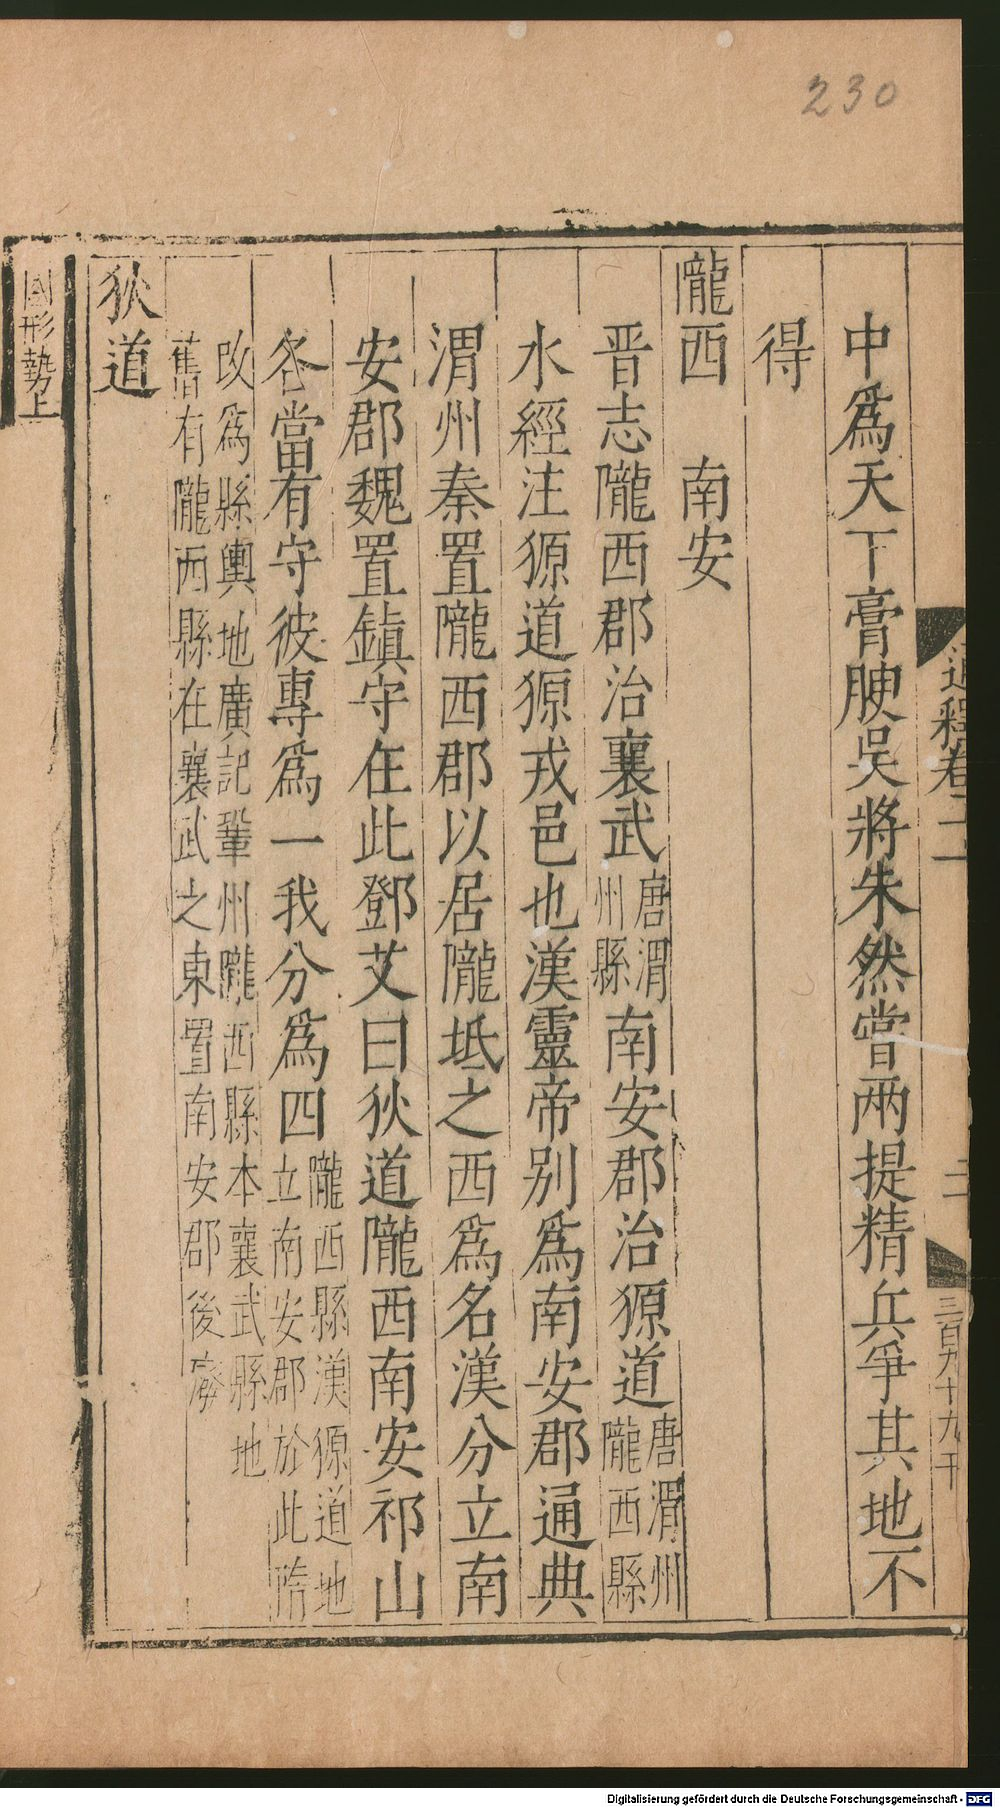 230
通釋卷十一
二
三百九十九干
中爲天下膏腴吴將朱然嘗两提精兵爭其地不
得
隴西　南安
晋志隴西郡治襄武唐渭州縣南安郡治獂道唐渭州隴西縣
水經注獂道獂戎邑也漢靈帝别爲南安郡通典
渭州秦置隴西郡以居隴坻之西爲名漢分立南
安郡魏置鎮守在此鄧艾曰狄道隴西南安祁山
各當有守彼專爲一我分爲四隴西縣漢獂道地立南安郡於此隋
改爲縣輿地廣記鞏州隴西縣本襄武縣地
舊有隴西縣在襄武之東置南安郡後廢
狄道
國形勢上
Digitalisierung gefördert durch die Deutsche Forschungsgemeinschaft - DFG